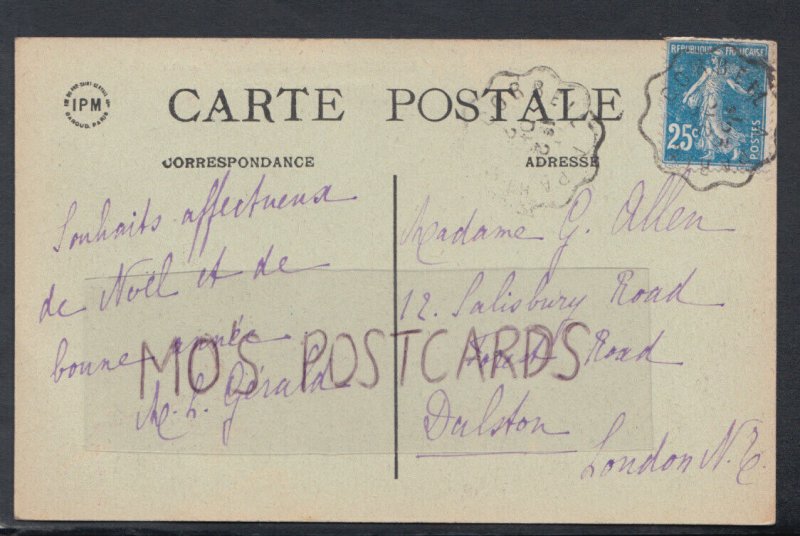 IPM
CARTE POSTALE
CORRESPONDANCE
ADRESSE
REPUBLIQUE FRANÇAISE
25c
POSTES
Souhaits affectueux
de Noël et de
bonne année
M. L. Gérald
Madame G. Allen
12. Salisbury Road
Road
Dalston
London N.E.
MO'S POSTCARDS